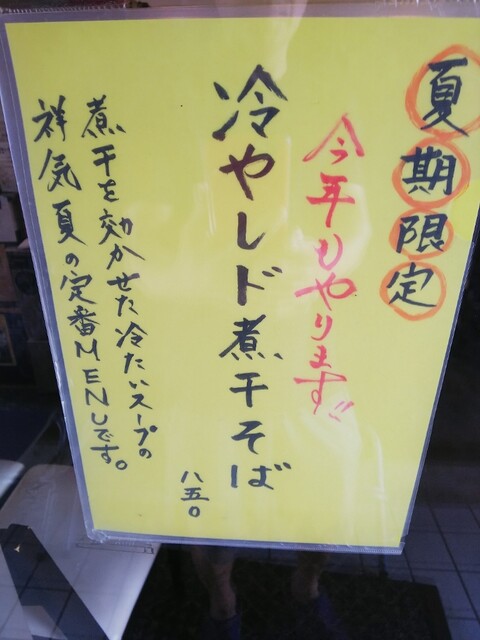 夏期限定
今年もやります!!
冷やしド煮干そば
八五〇
煮干を効かせた冷たいスープの
祥気夏の定番MENUです。